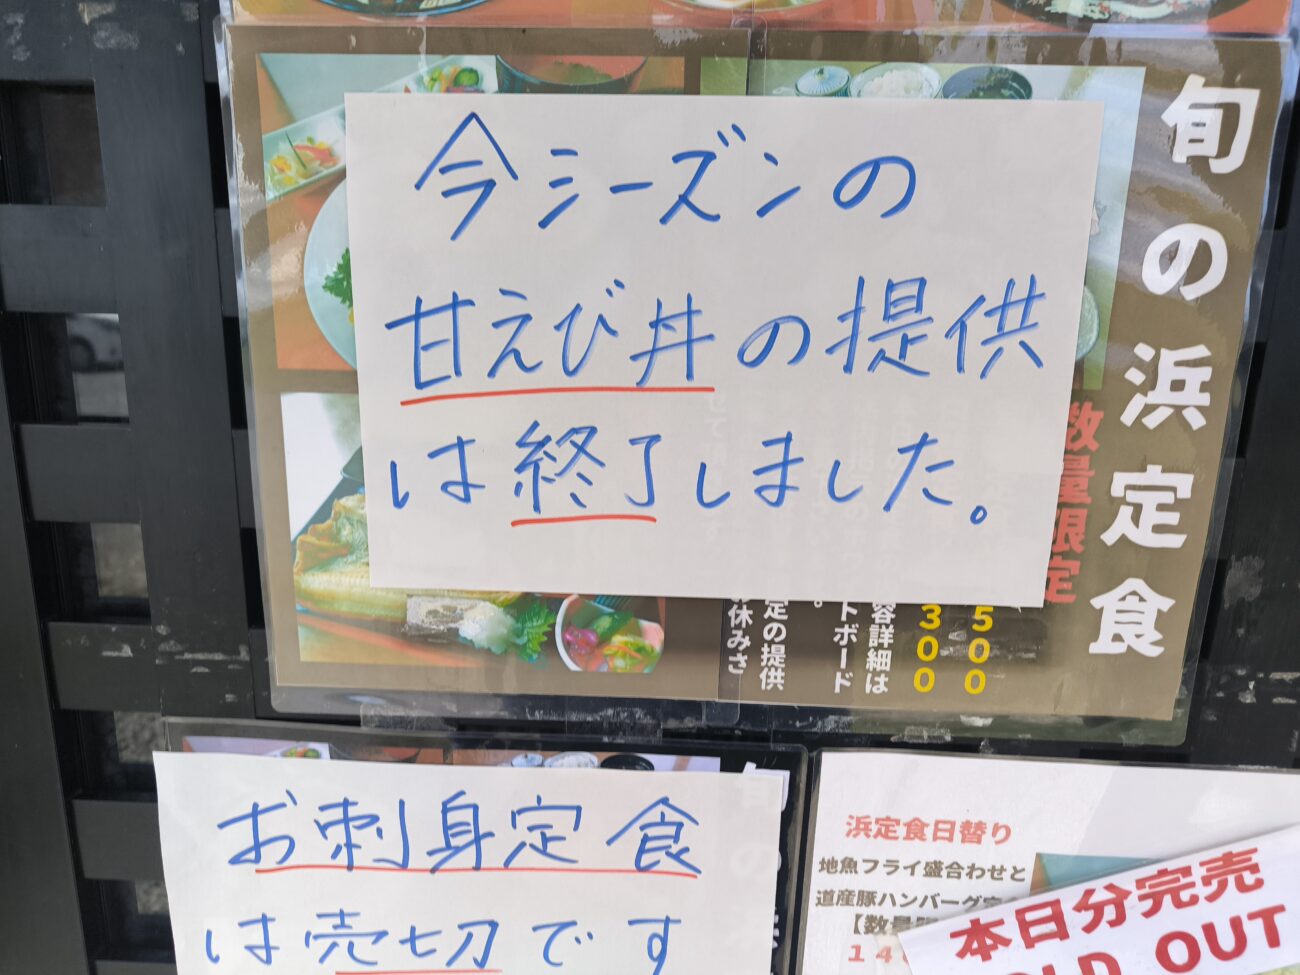 今シーズンの
甘えび丼の提供
は終了しました。
旬の浜定食
数量限定
500
300
容詳細は
トボード
定の提供
休みさ
お刺身定食
は売切です
浜定食日替り
地魚フライ盛合わせと
道産豚ハンバーグ
【数量
本日分完売
SOLD OUT